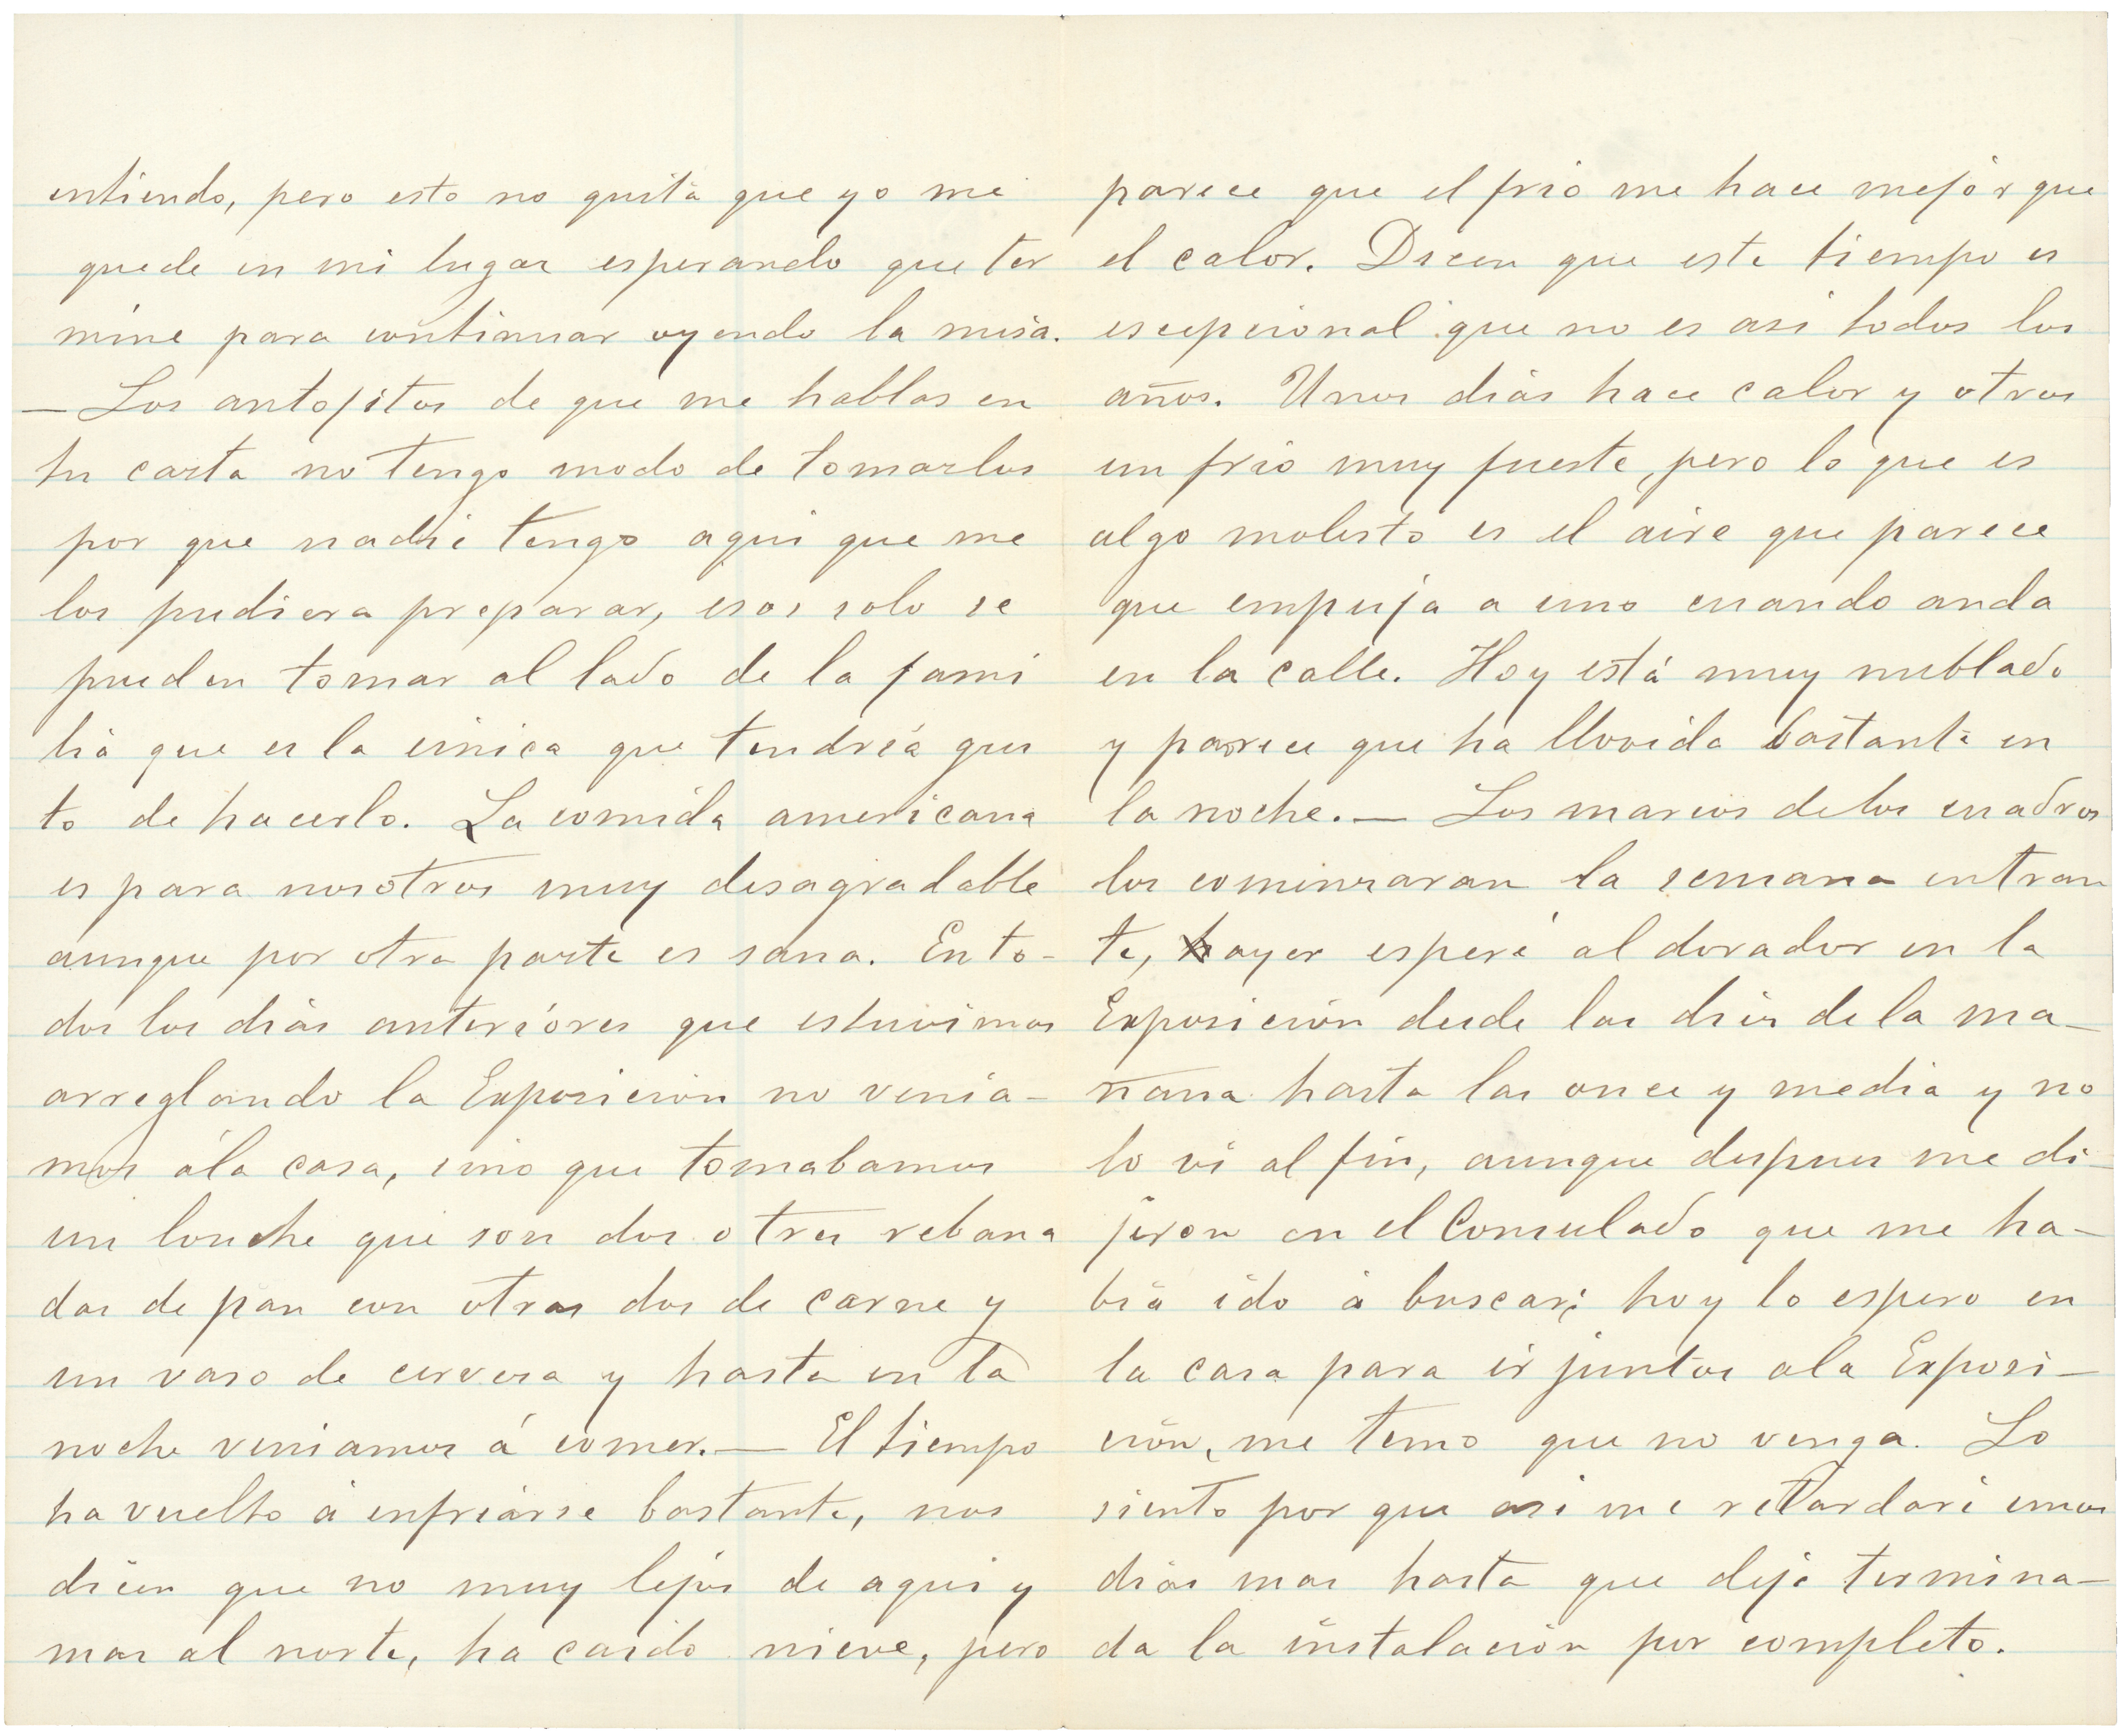 entiendo, pero esto no quita que yo me
quede en mi lugar esperando que ter
mine para continuar oyendo la misa.
— Los antojitos de que me hablas en
tu carta no tengo modo de tomarlos
por que nadie tengo aqui que me
los pudiera preparar, esos solo se
pueden tomar al lado de la fami
lia que es la única que tendría gus
to de hacerlo. La comida americana
es para nosotros muy desagradable
aunque por otra parte es sana. En to-
dos los dias anteriores que estuvimos
arreglando la Exposicion no venia-
mos á la casa, sino que tomabamos
un lonche que son dos o tres rebana
das de pan con otras dos de carne y
un vaso de cerveza y hasta en la
noche veniamos á comer. — El tiempo
ha vuelto á enfriarse bastante, nos
dicen que no muy lejos de aqui y
mas al norte, ha caido nieve, pero
parece que el frio me hace mejor que
el calor. Dicen que este tiempo es
escepcional que no es asi todos los
años. Unos dias hace calor y otros
un frio muy fuerte, pero lo que es
algo molesto es el aire que parece
que empuja a uno cuando anda
en la calle. Hoy está muy nublado
y parece que ha llovido bastante en
la noche. — Los marcos de los cuadros
los comenzaran la semana entran
te, ayer esperé al dorador en la
Exposicion desde las diez de la ma-
ñana hasta las once y media y no
lo vi al fin, aunque despues me di-
jeron en el Consulado que me ha-
bia ido á buscar; hoy lo espero en
la casa para ir juntos a la Exposi-
ción, me temo que no venga. Lo
siento por que asi me retardaré unos
dias mas hasta que deje termina-
da la instalacion por completo.